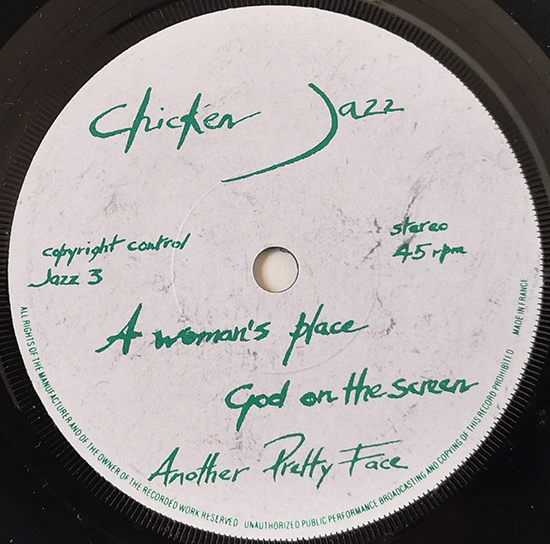 Chicken Jazz
copyright control
Jazz 3
stereo
45 rpm
A woman's place
God on the screen
Another Pretty Face
ALL RIGHTS OF THE MANUFACTURER AND OF THE OWNER OF THE RECORDED WORK RESERVED UNAUTHORIZED PUBLIC PERFORMANCE BROADCASTING AND COPYING OF THIS RECORD PROHIBITED MADE IN FRANCE